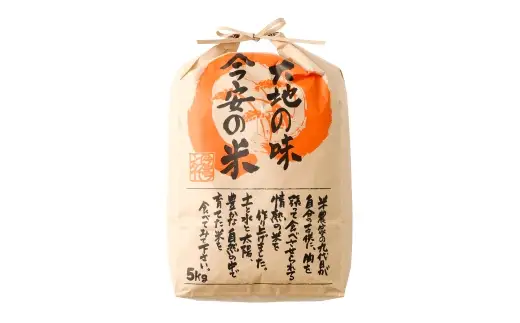 大地の味
今安の米
米農家の九代目が
自分の子供に胸を
張って食べさせられる
情熱の米を
作り上げました。
土と水と太陽、
豊かな自然の中で
育てた米を
食べてみて下さい。
5kg